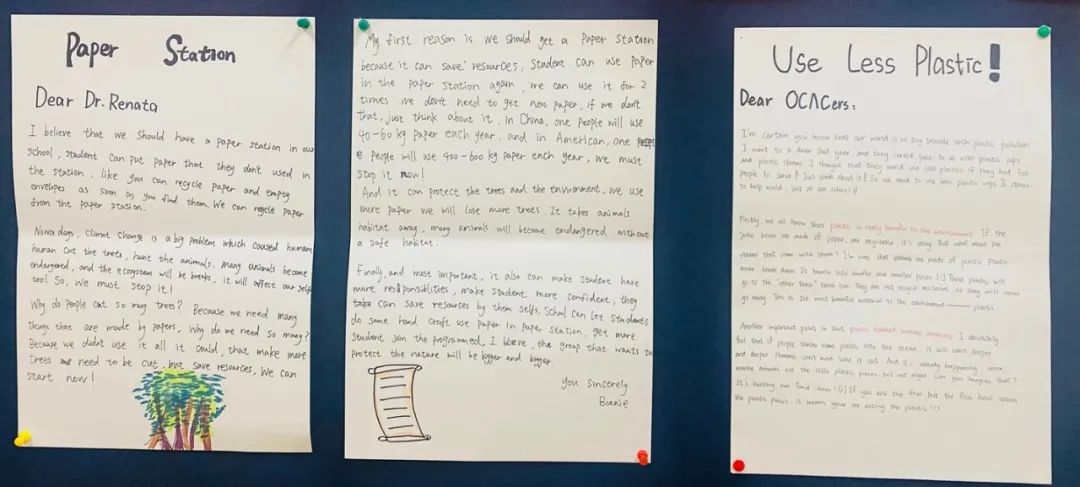 Paper Station
Dear Dr. Renata
I believe that we should have a paper station in our
school, student can put paper that they don't used in
the station, like you can recycle paper and empty
envelopes as soon as you find them. We can recycle paper
from the paper station.
Nowadays, Climat change is a big problem which caused human,
human cut the trees, hunt the animals. Many animals become
endangered, and the ecosystem will be breaks, it will affect our self
too! So, we must stop it!
Why do people cut so many trees? Because we need many
things that are made by papers. Why do we need so many?
Because we didn't use it all it could, that make more
trees need to be cut, but save resources, we can
start now!
My first reason is we should get a Paper Station
because it can save resources, student can use paper
in the paper station again, we can use it for 2
times, we don't need to get new paper, if we don't
that, just think about it. In China, one people will use
40-60 kg paper each year, and in American, one
people will use 400-600 kg paper each year, we must
stop it now!
And it can protect the trees and the environment, we use
more paper we will lose more trees. It takes animals
habitat away, many animals will become endangered without
a safe habitat.
Finally, and most important, it also can make student have
more responsibilities, make student more confident, they
can save resources by them selfs. School can let students
do some hand craft use paper in paper station, get more
student join the programed. I bieve, the group that wants to
protect the nature will be biger and biger.
You sincerely
Bonnie
Use Less Plastic!
Dear OCACers:
I'm certain you know that our world is in big trouble with plastic pollution
I went to a diner last year and they served juice to us with plastic cups
and plastic straws. I thought that they would use less plastics if they had less
people to serve! Just think about it! So we need to use less plastic cups & straws
to help world, just at our school!
Firstly, we all know that plastic is really harmful to the environment. If the
juice boxes are made of paper, are recyclable, it's okay. But what about the
straws that come with them? I'm sure that straws are made of plastic. Plastic
never break down. It breaks into smaller and smaller pieces. These plastic will
go to the "other trash" trash bin. They are not recycle material, so they will never
go away. This is the most harmful material to the environment — plastic.
Another important point is that plastic harmed marine animals. I absolutely
feel that if people throw some plastic into the ocean, it will reach deeper
and deeper. Humans can't even take it out. And it's already happening, some
marine animals eat the little plastic pieces but not algae. Can you imagine that?
It's hurting our food chain! If you ate the fish but the fish have eaten
the plastic pieces, it means you're are eating the plastic!!!